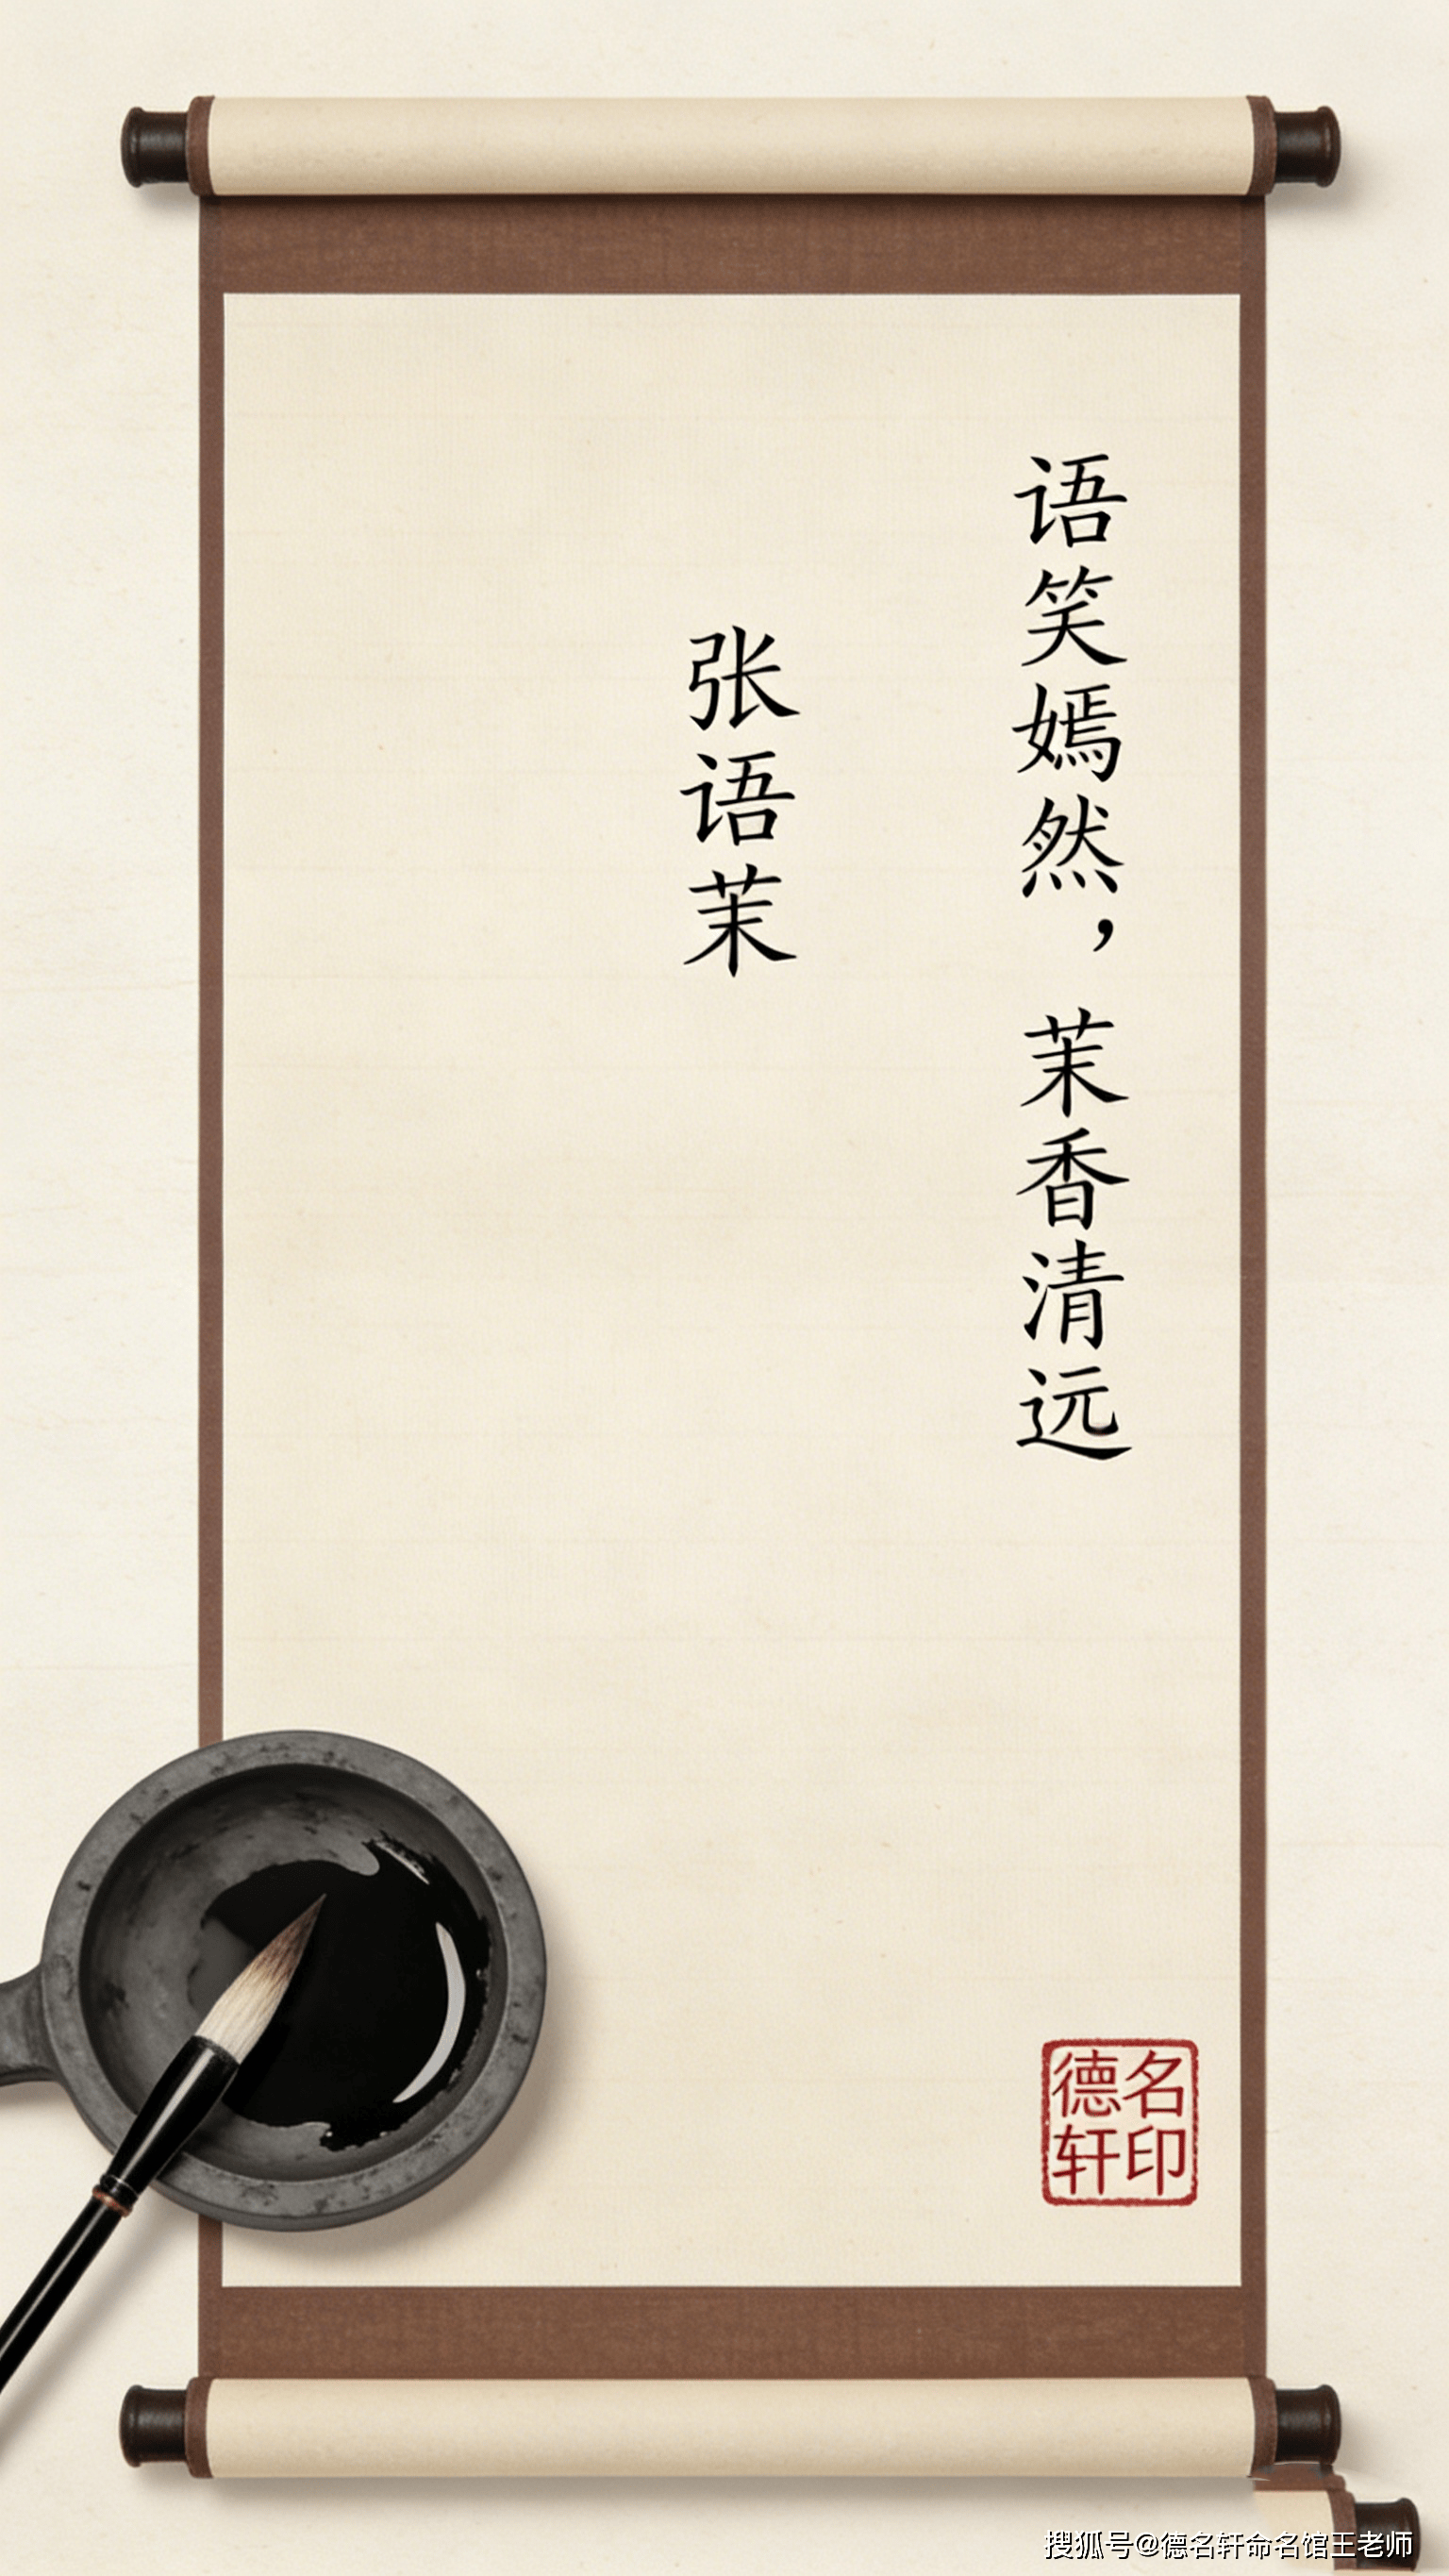 语笑嫣然，茉香清远
张语茉
德名
轩印
搜狐号@德名轩命名馆王老师